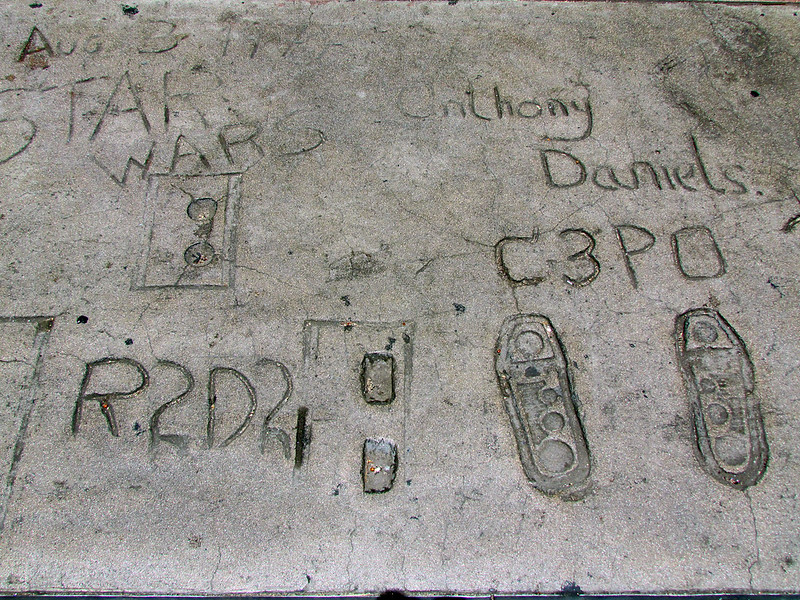 Aug 3 1977
STAR
WARS
Anthony
Daniels.
C3PO
R2D2